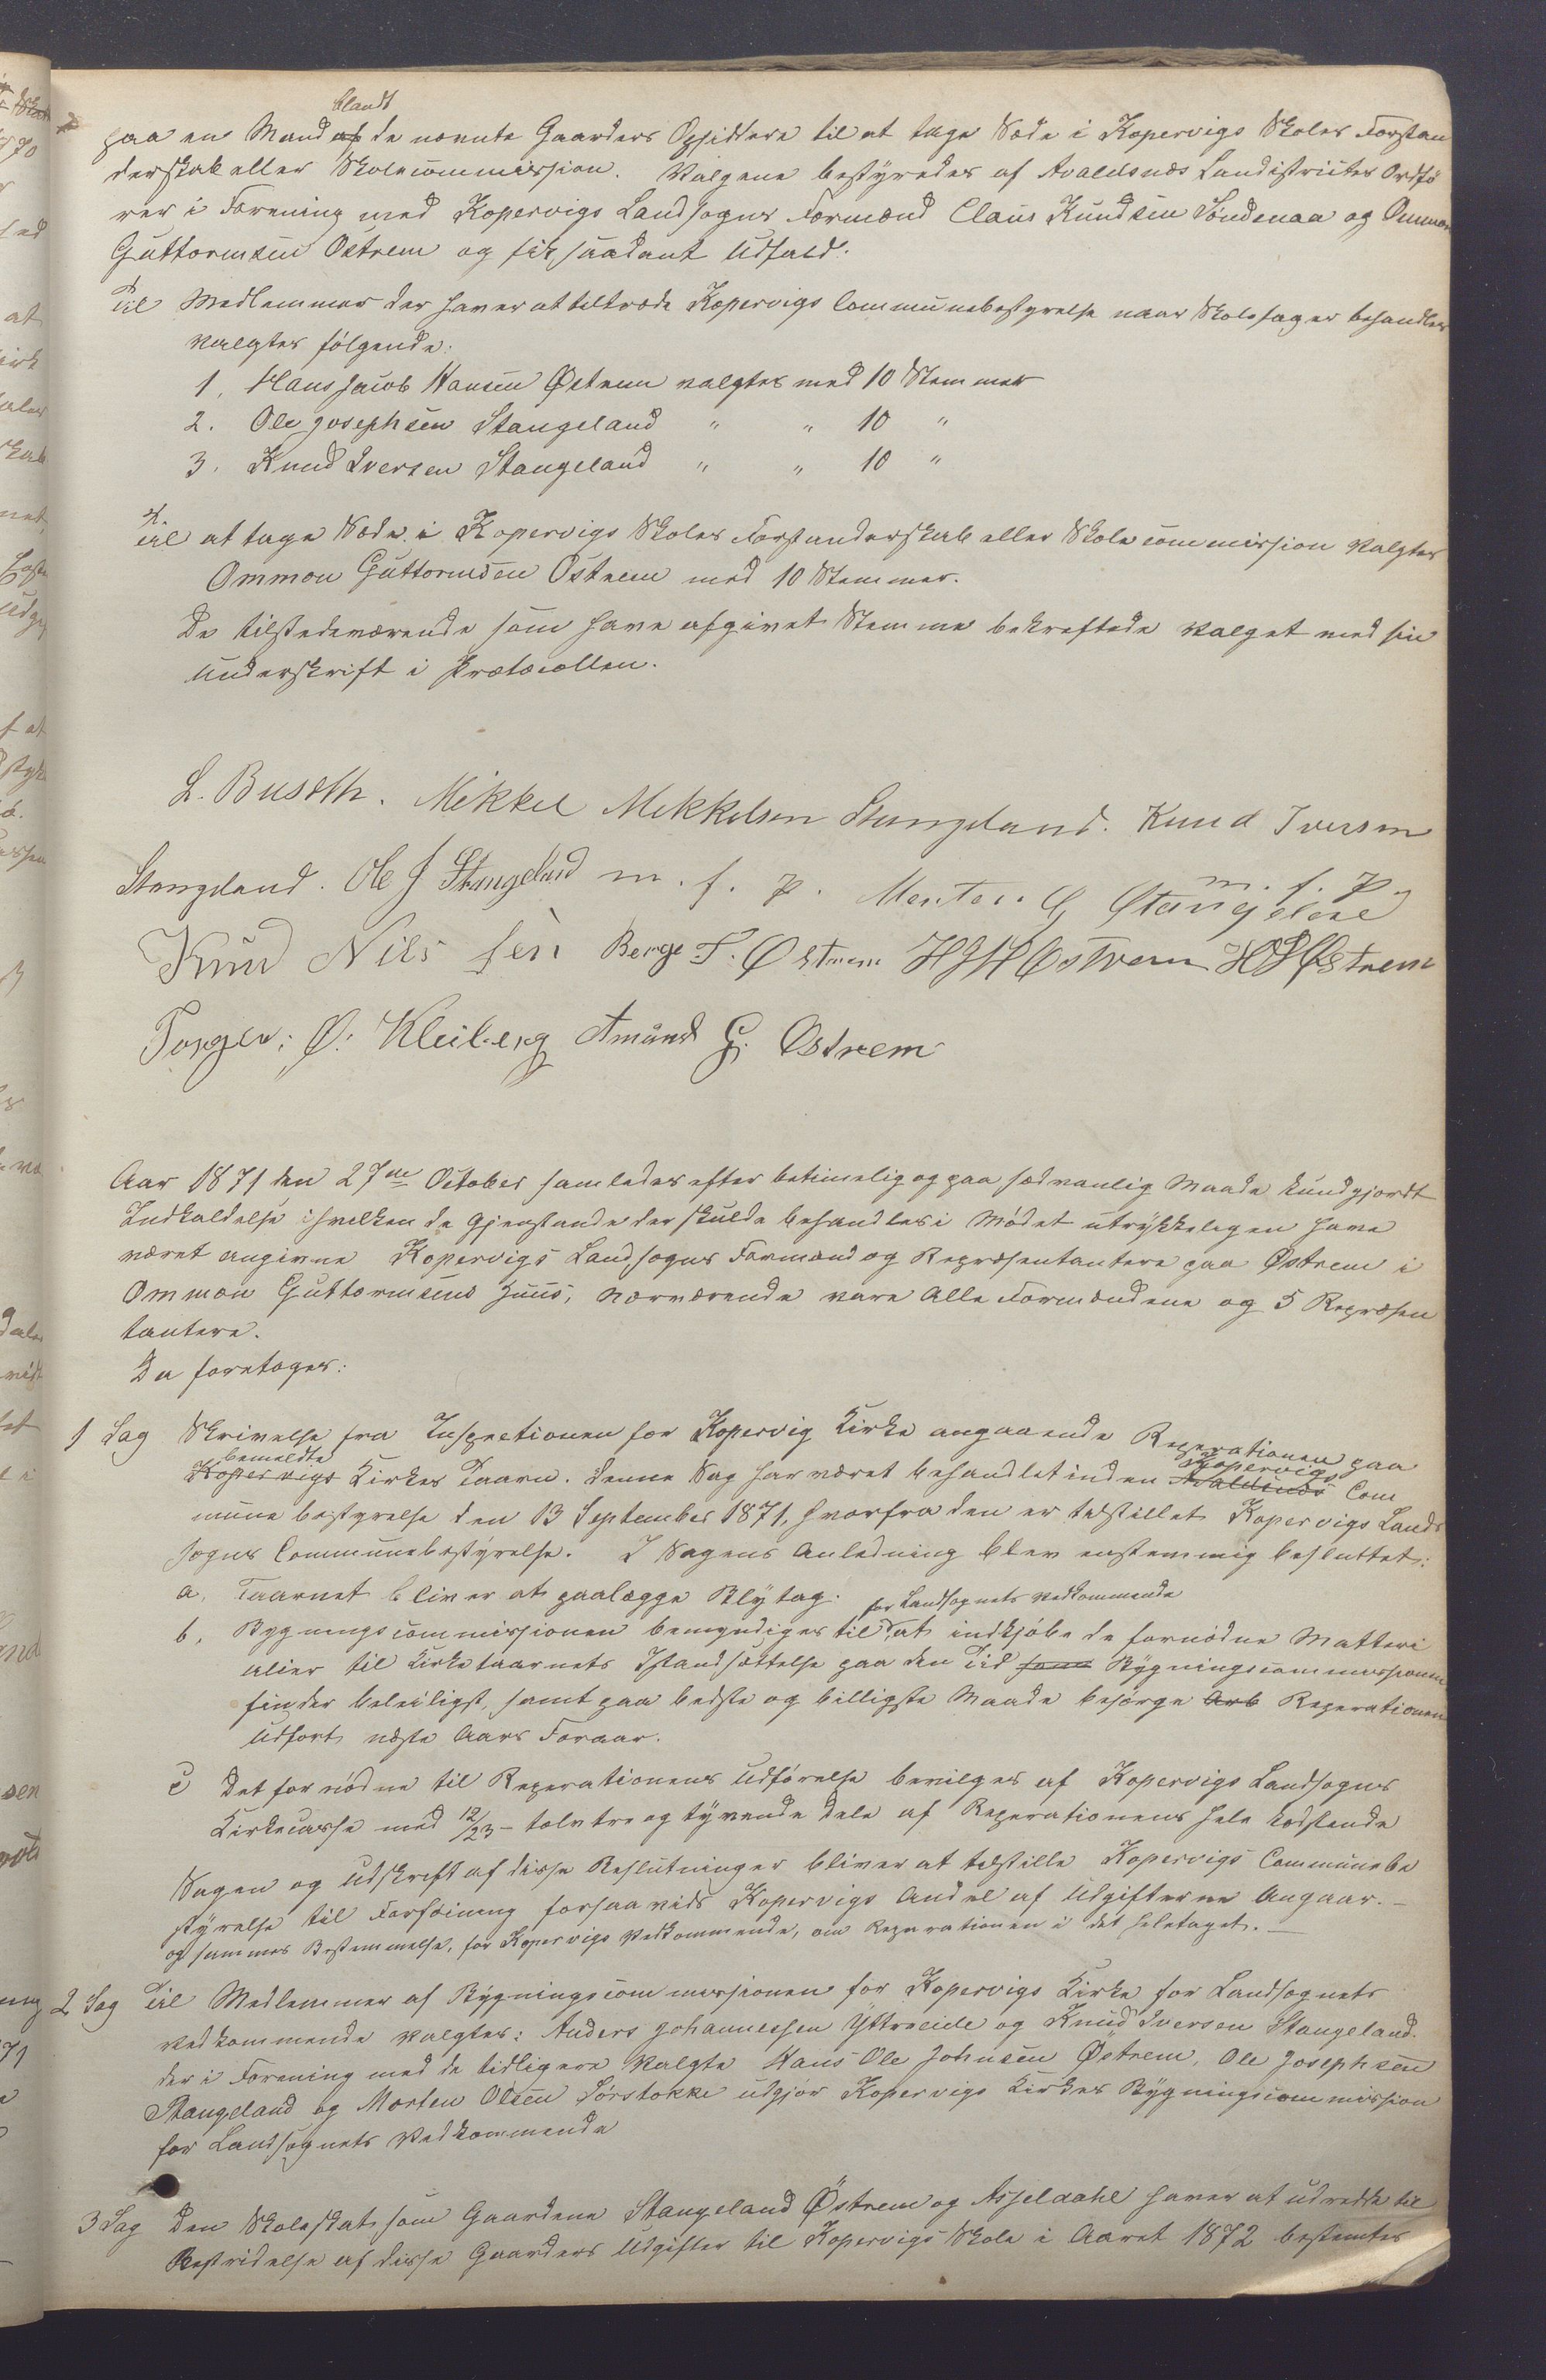 paa en Mand af blandt de nævnte Gaarders Opsiddere til at tage Sæde i Kopervigs Skoles Forstan
derskab eller Skolecommission. Valgene bestyredes af Avaldsnæs Landdistricts Ordfö
rer i Forening med Kopervigs Landsogns Formænd Claus Knudsen Söndenaa og Ommon
Guttormsen Östrem og fik saadant Udfald:
Til Medlemmer der haver at tiltræde Kopervigs Communebestyrelse naar Skolesager behandles
valgtes fölgende:
1. Hans Jacob Hansen Østrem valgtes med 10 Stemmer
2. Ole Josephsen Stangeland " " 10 "
3. Knud Iversen Stangeland " " 10 "
Til at tage Sæde i Kopervigs Skoles Forstanderskab eller Skolecommission valgtes
Ommon Guttormsen Östrem med 10 Stemmer.
De tilstedeværende som have afgivet Stemme bekræftede Valget med sin
Underskrift i Protocollen.
L. Buseth. Mikkel Mikkelsen Stangeland. Knud Iversen
Stangeland. Ole J Stangeland m. f. P. m. f. P.
Knud Nils sen Berge T. Østrem HJH Østrem HO Østrem
Torger: Ø: Kleiberg Amund G. Østrem
Aar 1871 den 27de October samledes efter betimelig og paa sædvanlig Maade kundgjordt
Indkaldelse i hvilken de Gjenstande der skulde behandles i Mödet utrykkelegen have
været angivne Kopervigs Landsogns Formænd og Repræsentantere paa Østrem i
Ommon Guttormsens Huus, nærværende vare Alle Formændene og 5 Repræsen
tantere.
Da foretoges:
1 Sag Skrivelse fra Inspectionen for Kopervig Kirke angaaende Reperationen paa
Kopervigs bemeldte Kirkes Taarn. Denne Sag har været behandlet inden Avaldsnæs Kopervigs Com
mune bestyrelse den 13 September 1871, hvorfra den er tilstillet Kopervigs Lands
sogns Communebestyrelse. I Sagens Anledning blev enstemmig besluttet:
a. Taarnet bliver at paalægge Blytag.
b. Bygningscommissionen bemyndiges til for Landsognets Vedkommende at indkjöbe de fornödne Matteri
alier til Kirketaarnets Istandsættelse paa den Tid som Bygningscommissionen
finder beleiligst, samt paa bedste og billigste Maade besörge Arb Reperationen
Udfört næste Aars Foraar.
c Det fornödne til Reperationens Udförelse bevilges af Kopervigs Landsogns
Kirkecasse med 12/23 – tolv tre og tyvende dele af Reperationens hele kostende
Sagen og Udskrift af disse Beslutninger bliver at tilstille Kopervigs Communebe
styrelse til Forföining forsaavidt Kopervigs Andel af Udgifterne Angaar. –
og sammes Bestemmelse, for Kopervigs Vedkommende, om Reparationen i det heletaget. –
2 Sag Til Medlemmer af Bygningscommissionen for Kopervigs Kirke for Landsognets
Vedkommende valgtes: Anders Johannessen Yttreeide og Knud Iversen Stangeland.
der i Forening med de tidligere Valgte Hans Ole Johnsen Östrem, Ole Josephsen
Stangeland og Morten Olsen Sörstokke udgjör Kopervigs Kirkes Bygningscommission
for Landsognets Vedkommende
3 Sag Den Skoleskat som Gaardene Stangeland Östrem og Asseldahl haver at udrede til
Bestridelse af disse Gaarders Udgifter til Kopervigs Skole i Aaret 1872 bestemtes